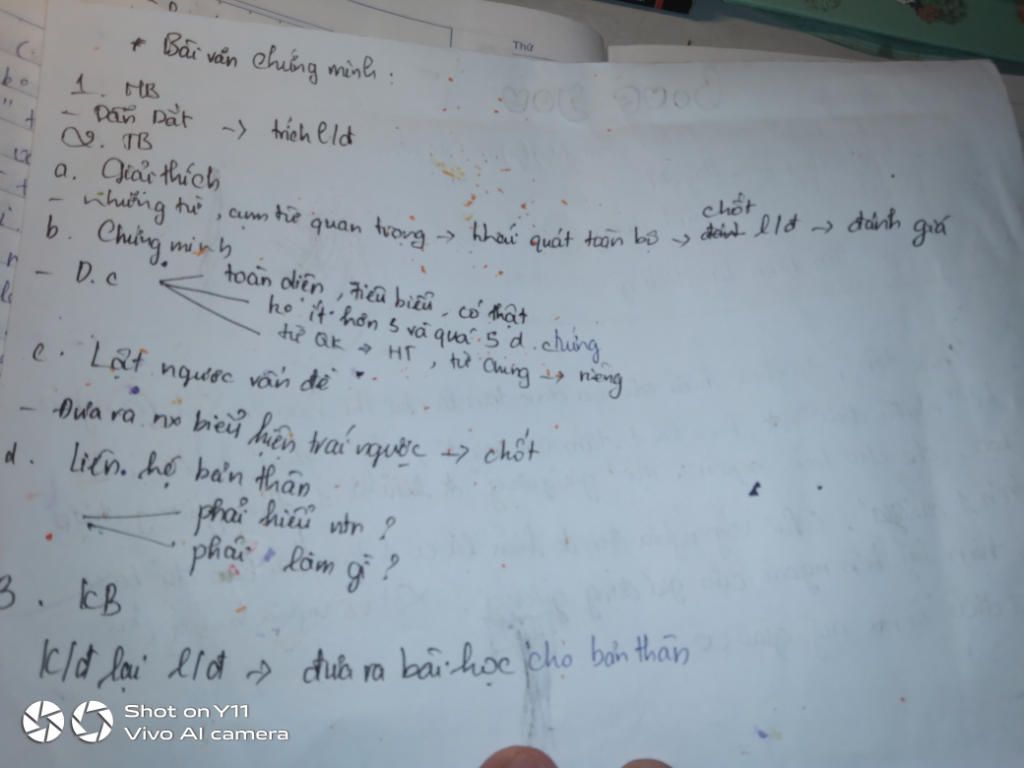 Thứ
* Bài văn chứng minh:
1. MB
- Dẫn Dắt -> trích l/đ
2. TB
a. Giải thích
- những từ, cụm từ quan trọng -> khái quát toàn bộ -> chốt l/đ -> đánh giá
b. Chứng minh
- D.c
toàn diện, tiêu biểu, có thật
ko ít hơn 3 và quá 5 d.chứng
từ QK -> HT, từ chung -> riêng
c. Lật ngược vấn đề
- Đưa ra nx biểu hiện trái ngược -> chốt
d. Liên hệ bản thân
phải hiểu ntn?
phải làm gì?
3. KB
K/đ lại l/đ -> đưa ra bài học cho bản thân
Shot on Y11
Vivo AI camera